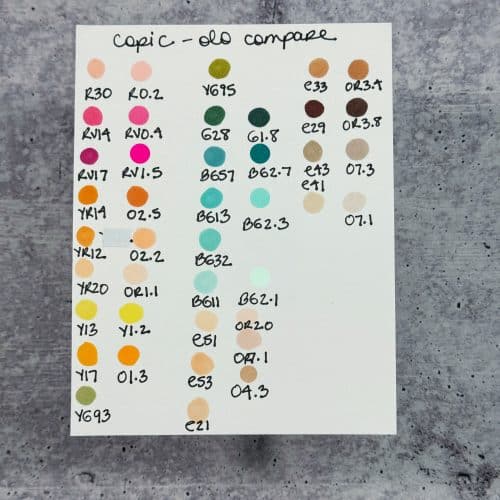 copic - olo compare
R30 R0.2
RV14 RV0.4
RV17 RV1.5
YR14 O2.5
YR12 O2.2
YR20 OR1.1
Y13 Y1.2
Y17 O1.3
YG93
YG95
G28 G1.8
BG57 BG2.7
BG13 BG2.3
BG32
BG11 BG2.1
e51 OR2.0
OR7.1
e53 O4.3
e21
e33 OR3.4
e29 OR3.8
e43 O7.3
e41 O7.1